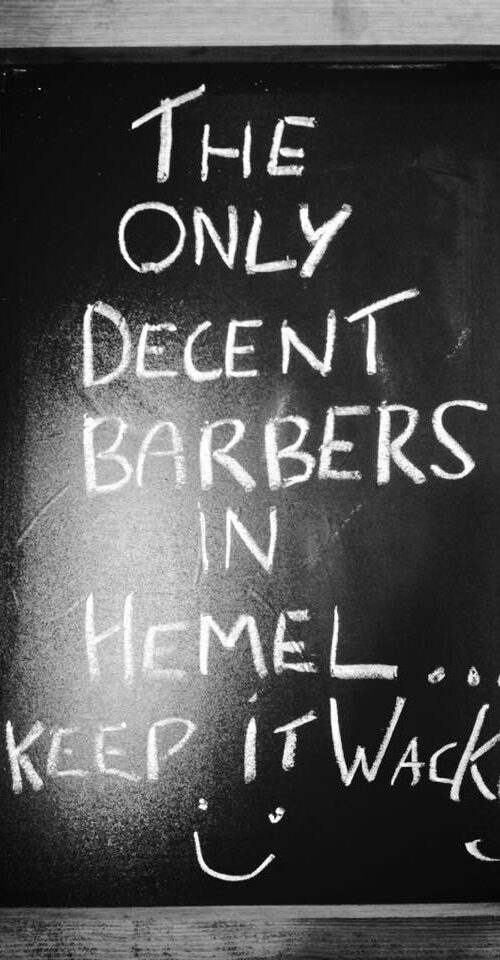 THE
ONLY
DECENT
BARBERS
IN
HEMEL...
KEEP iT WACK